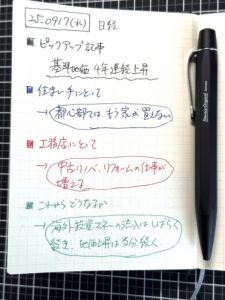 25.09.17(水) 日経
■ ピックアップ記事
基準地価 4年連続上昇
■ 住まい手にとって
→ 都心部では もう家が買えない
■ 工務店にとって
→ 中古リノベ、リフォームの仕事が
増える
■ これからどうなるか
→ 海外投資マネーの流入はしばらく
続き、地価上昇は当分続く。